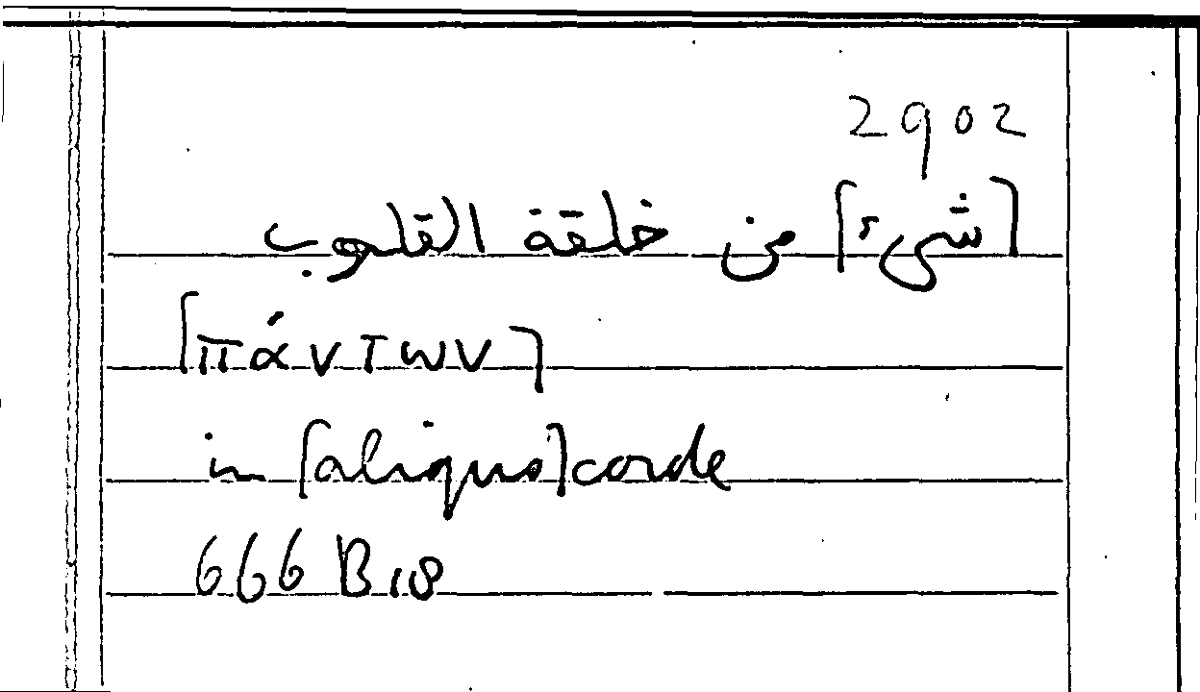 2902
[شيء] من خلقة القلوب
[πάντων]
in [aliquo] corde
666 B 18